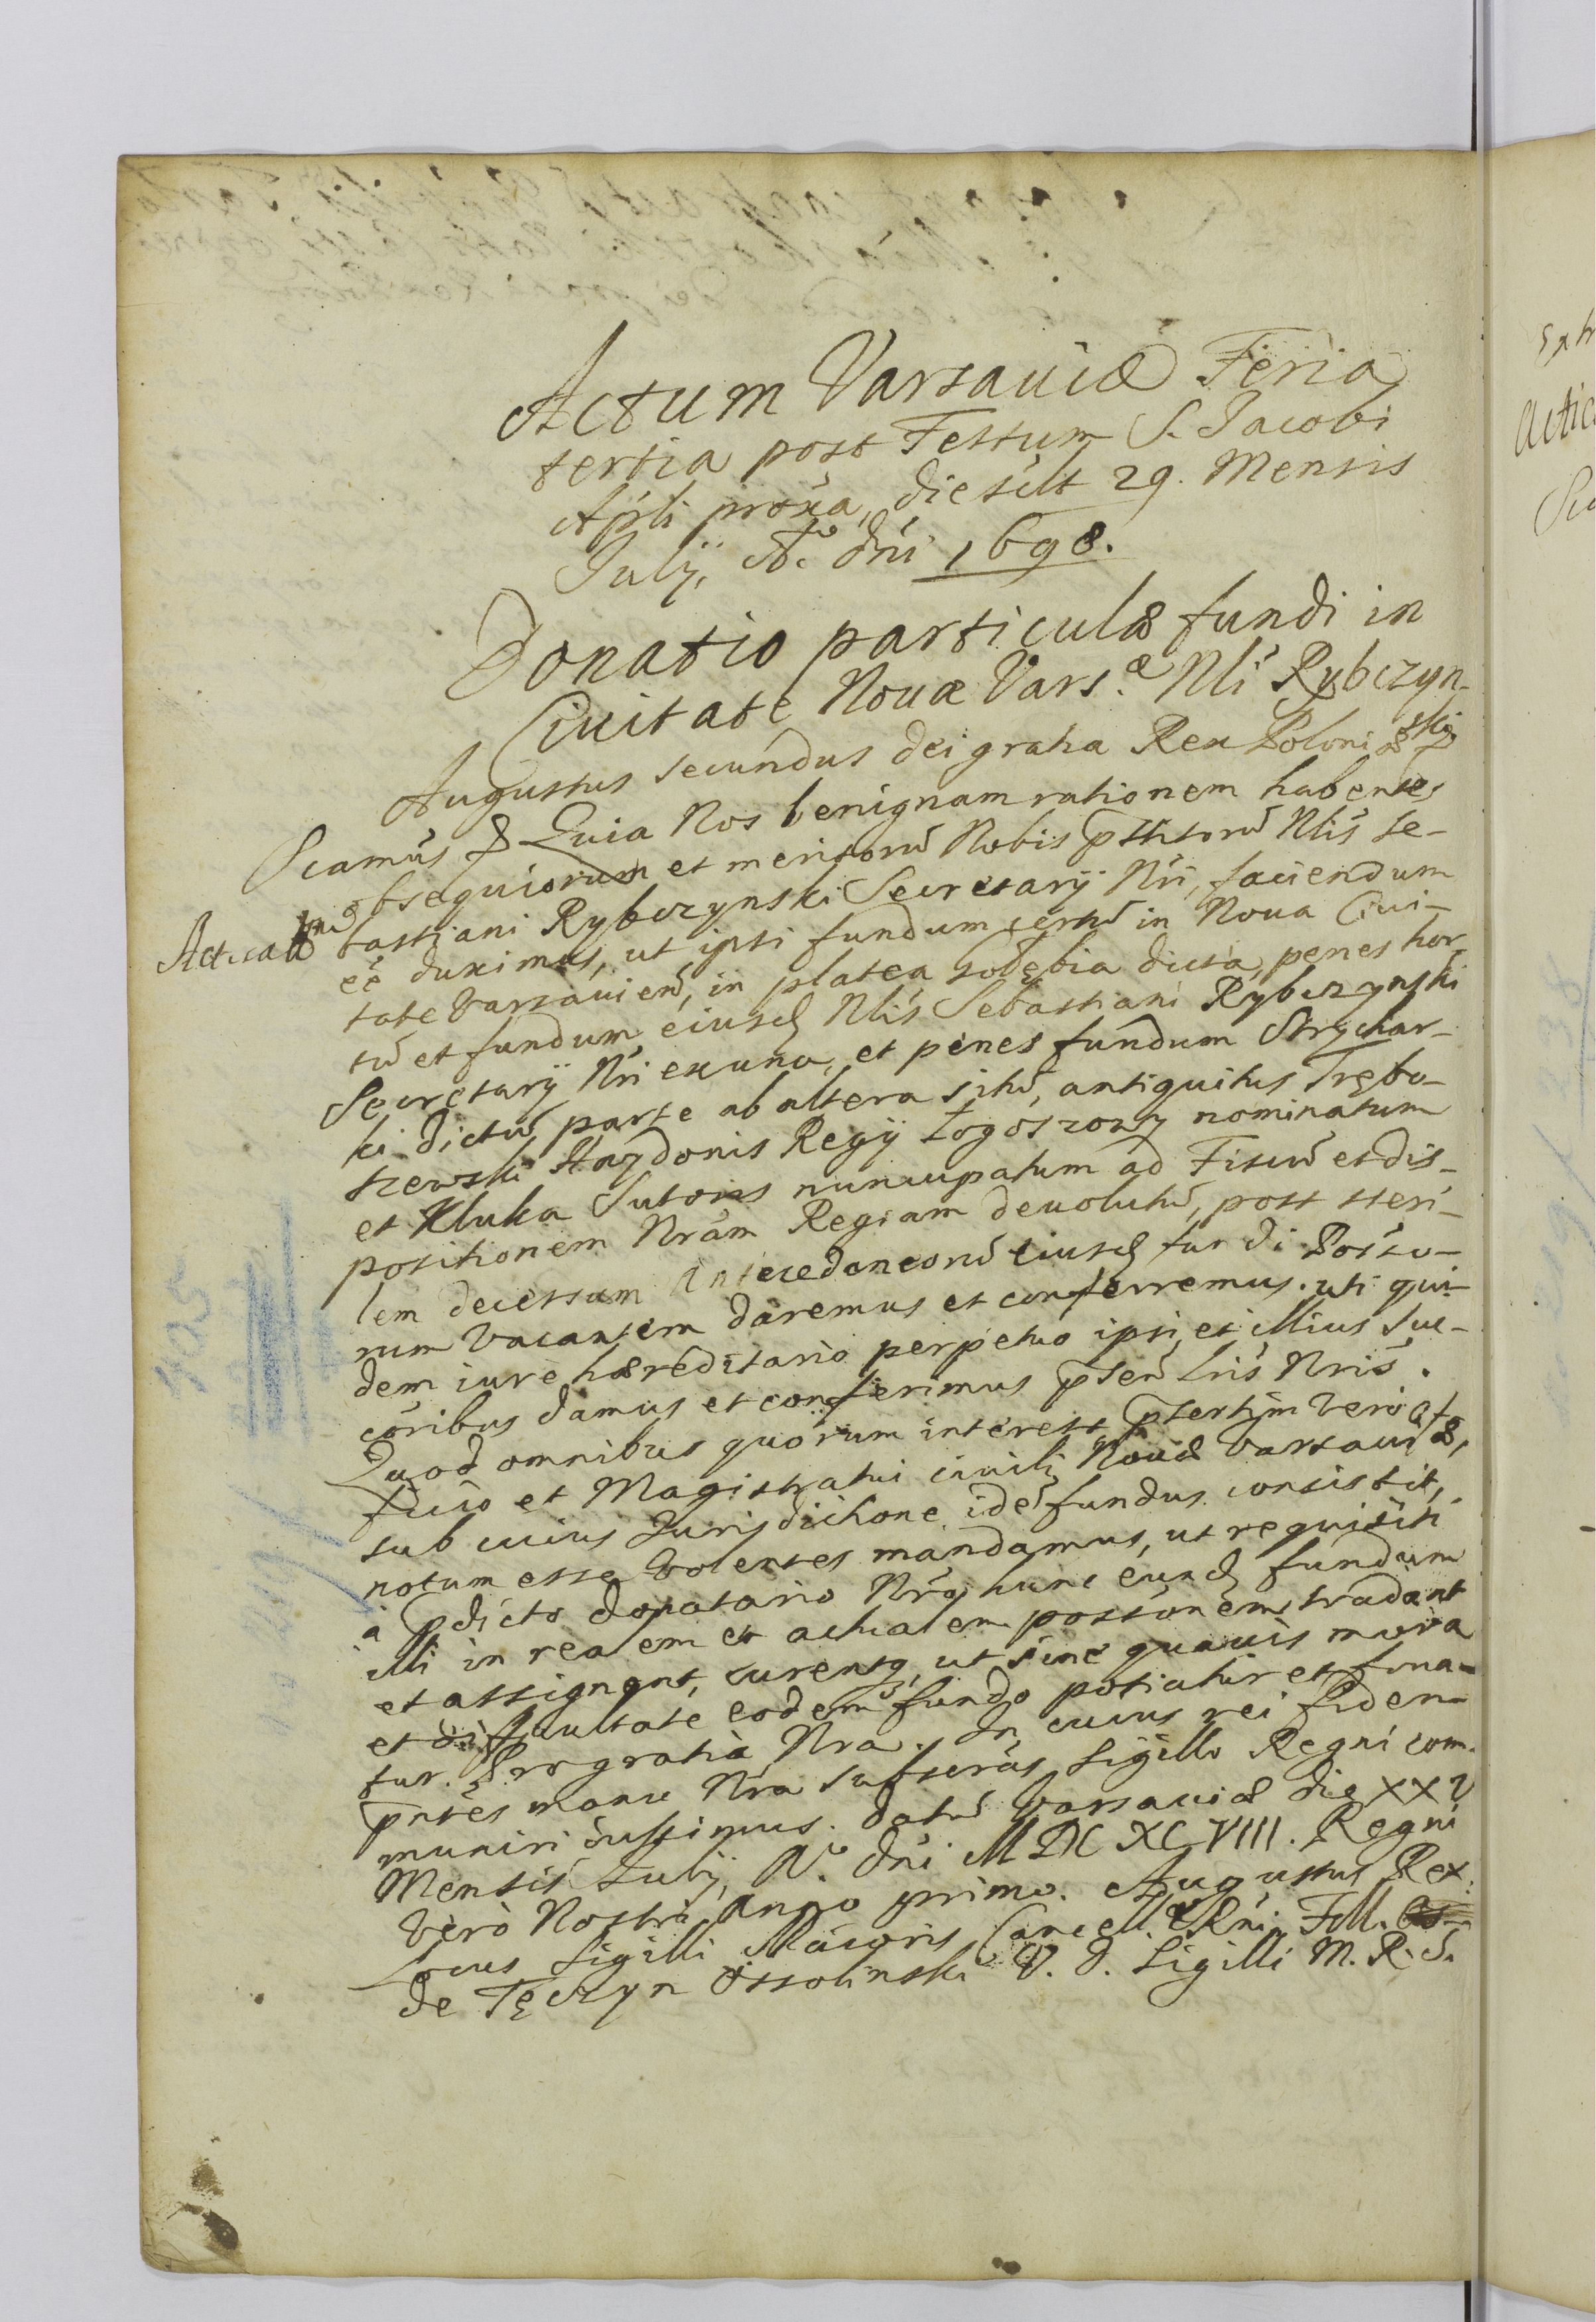 Actum Varsaviæ Feria
tertia post Festum S. Jacobi
Apli proxa, die scilt 29. Mensis
Julÿ, Ao. dni 1698.
Donatio particulæ fundi in
Ciuitate Nouæ Vars.æ Nli Rybczyn-
ski
Augustus secundus dei gratia Rex Poloniæ &
Scamus & Quia Nos benignam rationem habentes
obsequiorum et meritorũ Nobis pstitorũ Nlis Se-
Acticat
bastiani Rybczynski Secretarÿ Nri, faciendum
eē duximus, ut ipsi fundum certũ in Noua Ciui-
tate Varsauien, in platea dicta, penes hor-
tũ et fundum eiusd Nlis Sebastiani Rybczynski
Secretarÿ Nri ex una, et penes fundum Strychar-
ki dictũ, parte ab altera sitũ, antiquitus Trębo-
szewski Haydonis Regÿ nominatum
et Kluka Sutoris nuncupatum ad Fiscũ et dis-
positionem Nram Regiam deuolutũ, post steri-
lem decessum Antecedaneorũ eiusd fundi Posso-
rum vacantem daremus et conferremus. uti qui-
dem iure hæreditario perpetuo ipsi, et illius suc-
coribus damus et conferimus pnten Lris Nris.
Quod omnibus quorum interest, psertim vero Off
ficio et Magistratui ciuili Nouæ Varsauiæ,
sub cuius Jurisdictione idẽ fundus consistit,
notum esse volentes mandamus, ut requisiti
a pdicto donatario Nro, hunc eund fundum
illi in realem et actualem possionem tradant
et assignent, curentq, ut sine quauis mora
et difficultate eodem fundo potiatur et frua-
tur. Pro gratia Nra. In cuius rei fidem
pntes manu Nra subscras Sigillo Regni com-
muniri iussimus. Datũ Varsauiæ die XXV
Mensis Julÿ, Ao. dni MDCXCVIII. Regni
vero Nostri Anno primo. Augustus Rex.
Locus Sigilli Maioris Cancell. Rni. FM.
de Tęczyn Ossolinski V. D. Sigilli M. R. S.